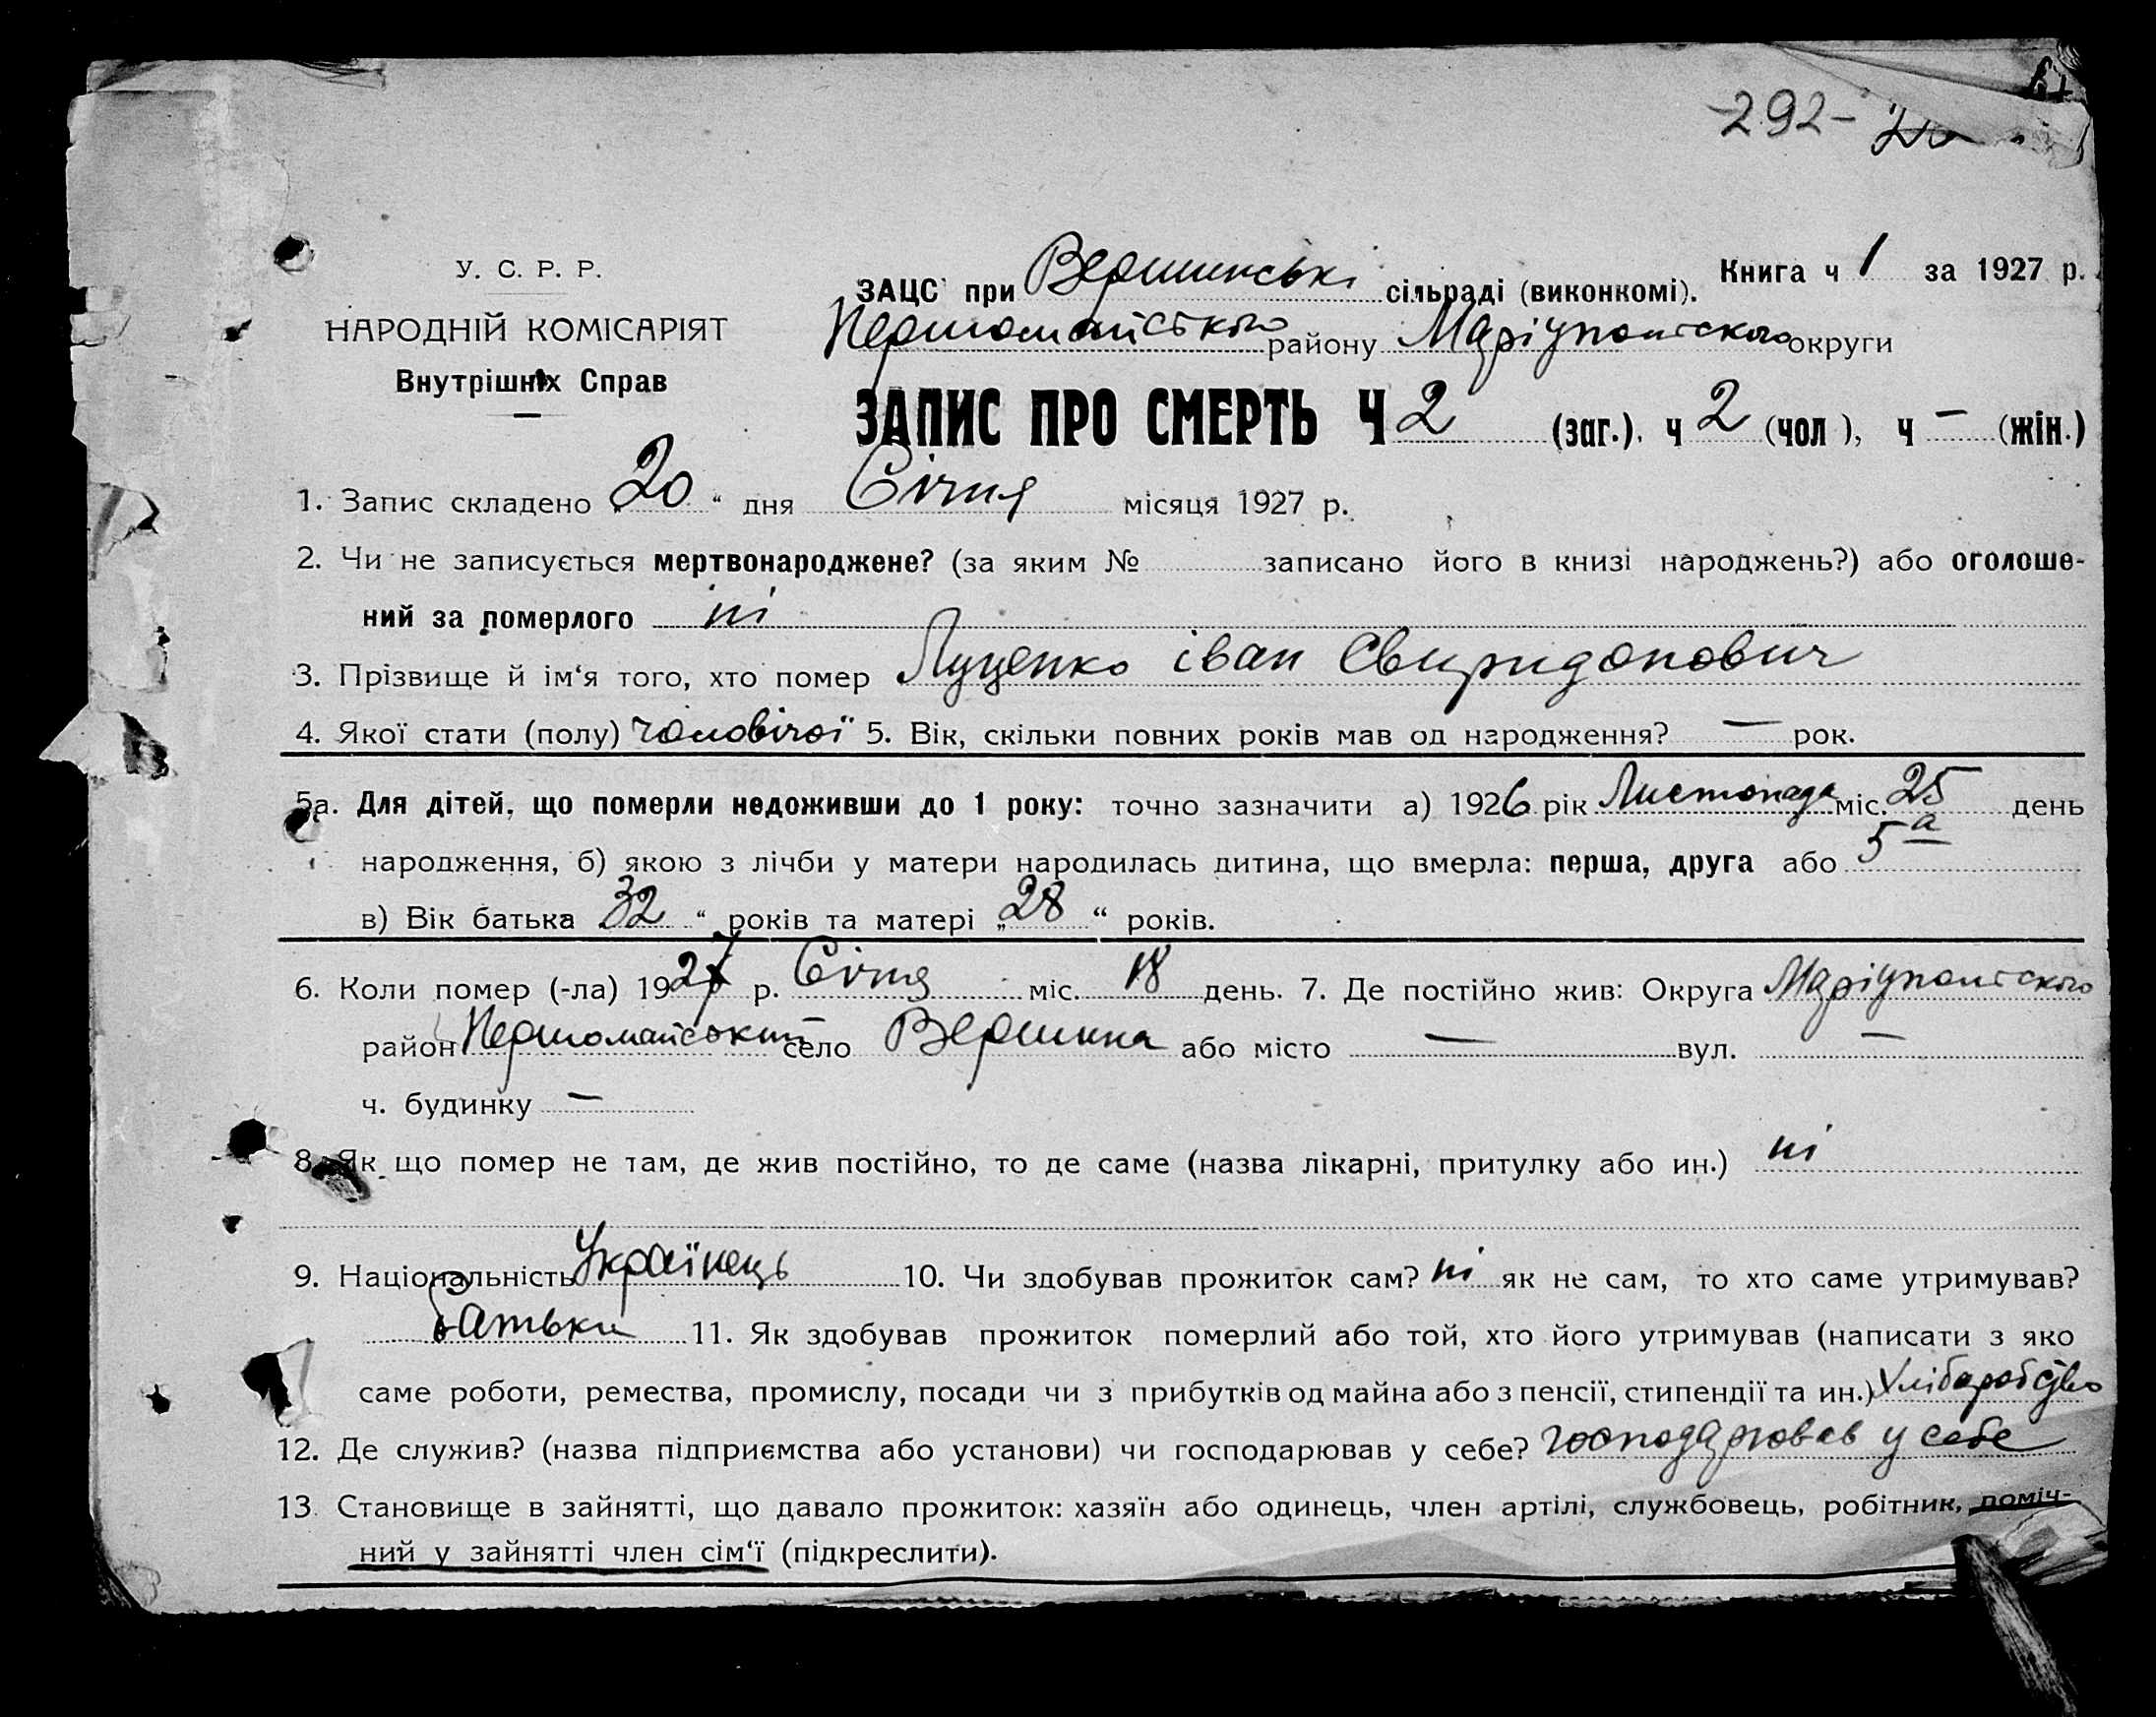 292-
У. С. Р. Р.
НАРОДНІЙ КОМІСАРІЯТ
Внутрішніх Справ
ЗАЦС при Вершинські сільраді (виконкомі). Книга ч 1 за 1927 р.
Первомайського району Маріупольского округи
ЗАПИС ПРО СМЕРТЬ Ч 2 (заг.). ч 2 (чол), ч — (жін.)
1. Запис складено „20“ дня Січня місяця 1927 р.
2. Чи не записується мертвонароджене? (за яким № записано його в книзі народжень?) або оголоше-
ний за померлого ні
3. Прізвище й ім‘я того, хто помер Луценко іван Свиридонович
4. Якої стати (полу) чоловічої 5. Вік, скільки повних років мав од народження? — рок.
5а. Для дітей, що померли недоживши до 1 року: точно зазначити а) 1926 рік Листопада міс. 25 день
народження, б) якою з лічби у матери народилась дитина, що вмерла: перша, друга або 5а
в) Вік батька 32 “ років та матері „28“ років.
6. Коли помер (-ла) 1927 р. Січня міс. 18 день. 7. Де постійно жив: Округа Маріупольского
район Первомайський село Вершина або місто — вул. —
ч. будинку —
8. Як що помер не там, де жив постійно, то де саме (назва лікарні, притулку або ин.) ні
9. Національність Українець 10. Чи здобував прожиток сам? ні як не сам, то хто саме утримував?
батьки 11. Як здобував прожиток померлий або той, хто його утримував (написати з яко
саме роботи, ремества, промислу, посади чи з прибутків од майна або з пенсії, стипендії та ин.) Хліборобство
12. Де служив? (назва підприємства або установи) чи господарював у себе? господарював у себе
13. Становище в зайнятті, що давало прожиток: хазяїн або одинець, член артілі, службовець, робітник, поміч-
ний у зайнятті член сім‘ї (підкреслити).